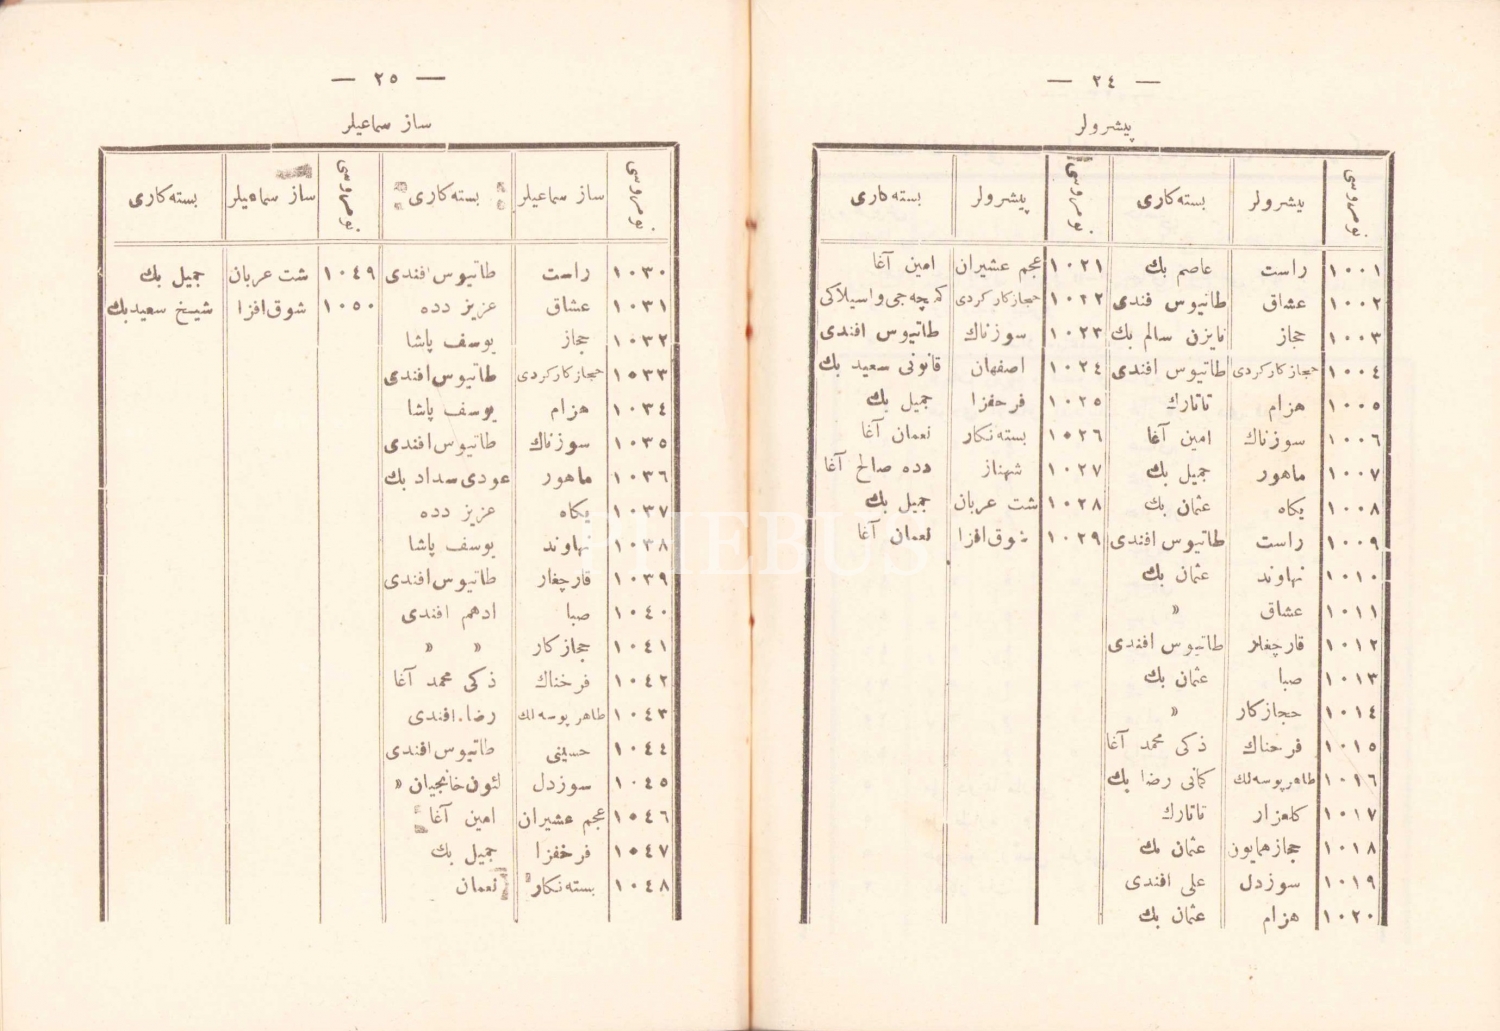 — ٢٤ —
پیشرولر
نومروسی | پیشرولر | بسته‌کاری | نومروسی | پیشرولر | بسته‌کاری
١٠٠١ | راست | عاصم بك | ١٠٢١ | عجم عشیران | امین آغا
١٠٠٢ | عشاق | طاتیوس فندی | ١٠٢٢ | حجازکارکردی | که‌چه‌جی واسیلاکی
١٠٠٣ | حجاز | نایزن سالم بك | ١٠٢٣ | سوزناك | طاتیوس افندی
١٠٠٤ | حجازکارکردی | طاتیوس افندی | ١٠٢٤ | اصفهان | قانونی سعید بك
١٠٠٥ | هزام | تاتارك | ١٠٢٥ | فرحفزا | جمیل بك
١٠٠٦ | سوزناك | امین آغا | ١٠٢٦ | بسته‌نکار | نعمان آغا
١٠٠٧ | ماهور | جمیل بك | ١٠٢٧ | شهناز | دده صالح آغا
١٠٠٨ | یکاه | عثمان بك | ١٠٢٨ | شت عربان | جمیل بك
١٠٠٩ | راست | طاتیوس افندی | ١٠٢٩ | شوق‌افزا | نعمان آغا
١٠١٠ | نهاوند | عثمان بك
١٠١١ | عشاق | »
١٠١٢ | قارجغار | طاتیوس افندی
١٠١٣ | صبا | عثمان بك
١٠١٤ | حجازکار | »
١٠١٥ | فرحناك | ذکی محمد آغا
١٠١٦ | طاهرپوسه‌لك | کمانی رضا بك
١٠١٧ | کلعزار | تاتارك
١٠١٨ | حجازهمایون | عثمان بك
١٠١٩ | سوزدل | علی افندی
١٠٢٠ | هزام | عثمان بك
— ٢٥ —
ساز سماعیلر
نومروسی | ساز سماعیلر | بسته‌کاری | نومروسی | ساز سماعیلر | بسته‌کاری
١٠٣٠ | راست | طاتیوس افندی | ١٠٤٩ | شت عربان | جمیل بك
١٠٣١ | عشاق | عزیز دده | ١٠٥٠ | شوق‌افزا | شیخ سعیدبك
١٠٣٢ | حجاز | یوسف پاشا
١٠٣٣ | حجازکارکردی | طاتیوس افندی
١٠٣٤ | هزام | یوسف پاشا
١٠٣٥ | سوزناك | طاتیوس افندی
١٠٣٦ | ماهور | عودی سداد بك
١٠٣٧ | یکاه | عزیز دده
١٠٣٨ | نهاوند | یوسف پاشا
١٠٣٩ | قارجغار | طاتیوس افندی
١٠٤٠ | صبا | ادهم افندی
١٠٤١ | حجازکار | » »
١٠٤٢ | فرخناك | ذکی محمد آغا
١٠٤٣ | طاهرپوسه‌لك | رضا افندی
١٠٤٤ | حسینی | طاتیوس افندی
١٠٤٥ | سوزدل | لئون خانجیان »
١٠٤٦ | عجم عشیران | امین آغا
١٠٤٧ | فرخفزا | جمیل بك
١٠٤٨ | بسته‌نکار | نعمان
PHEBUS